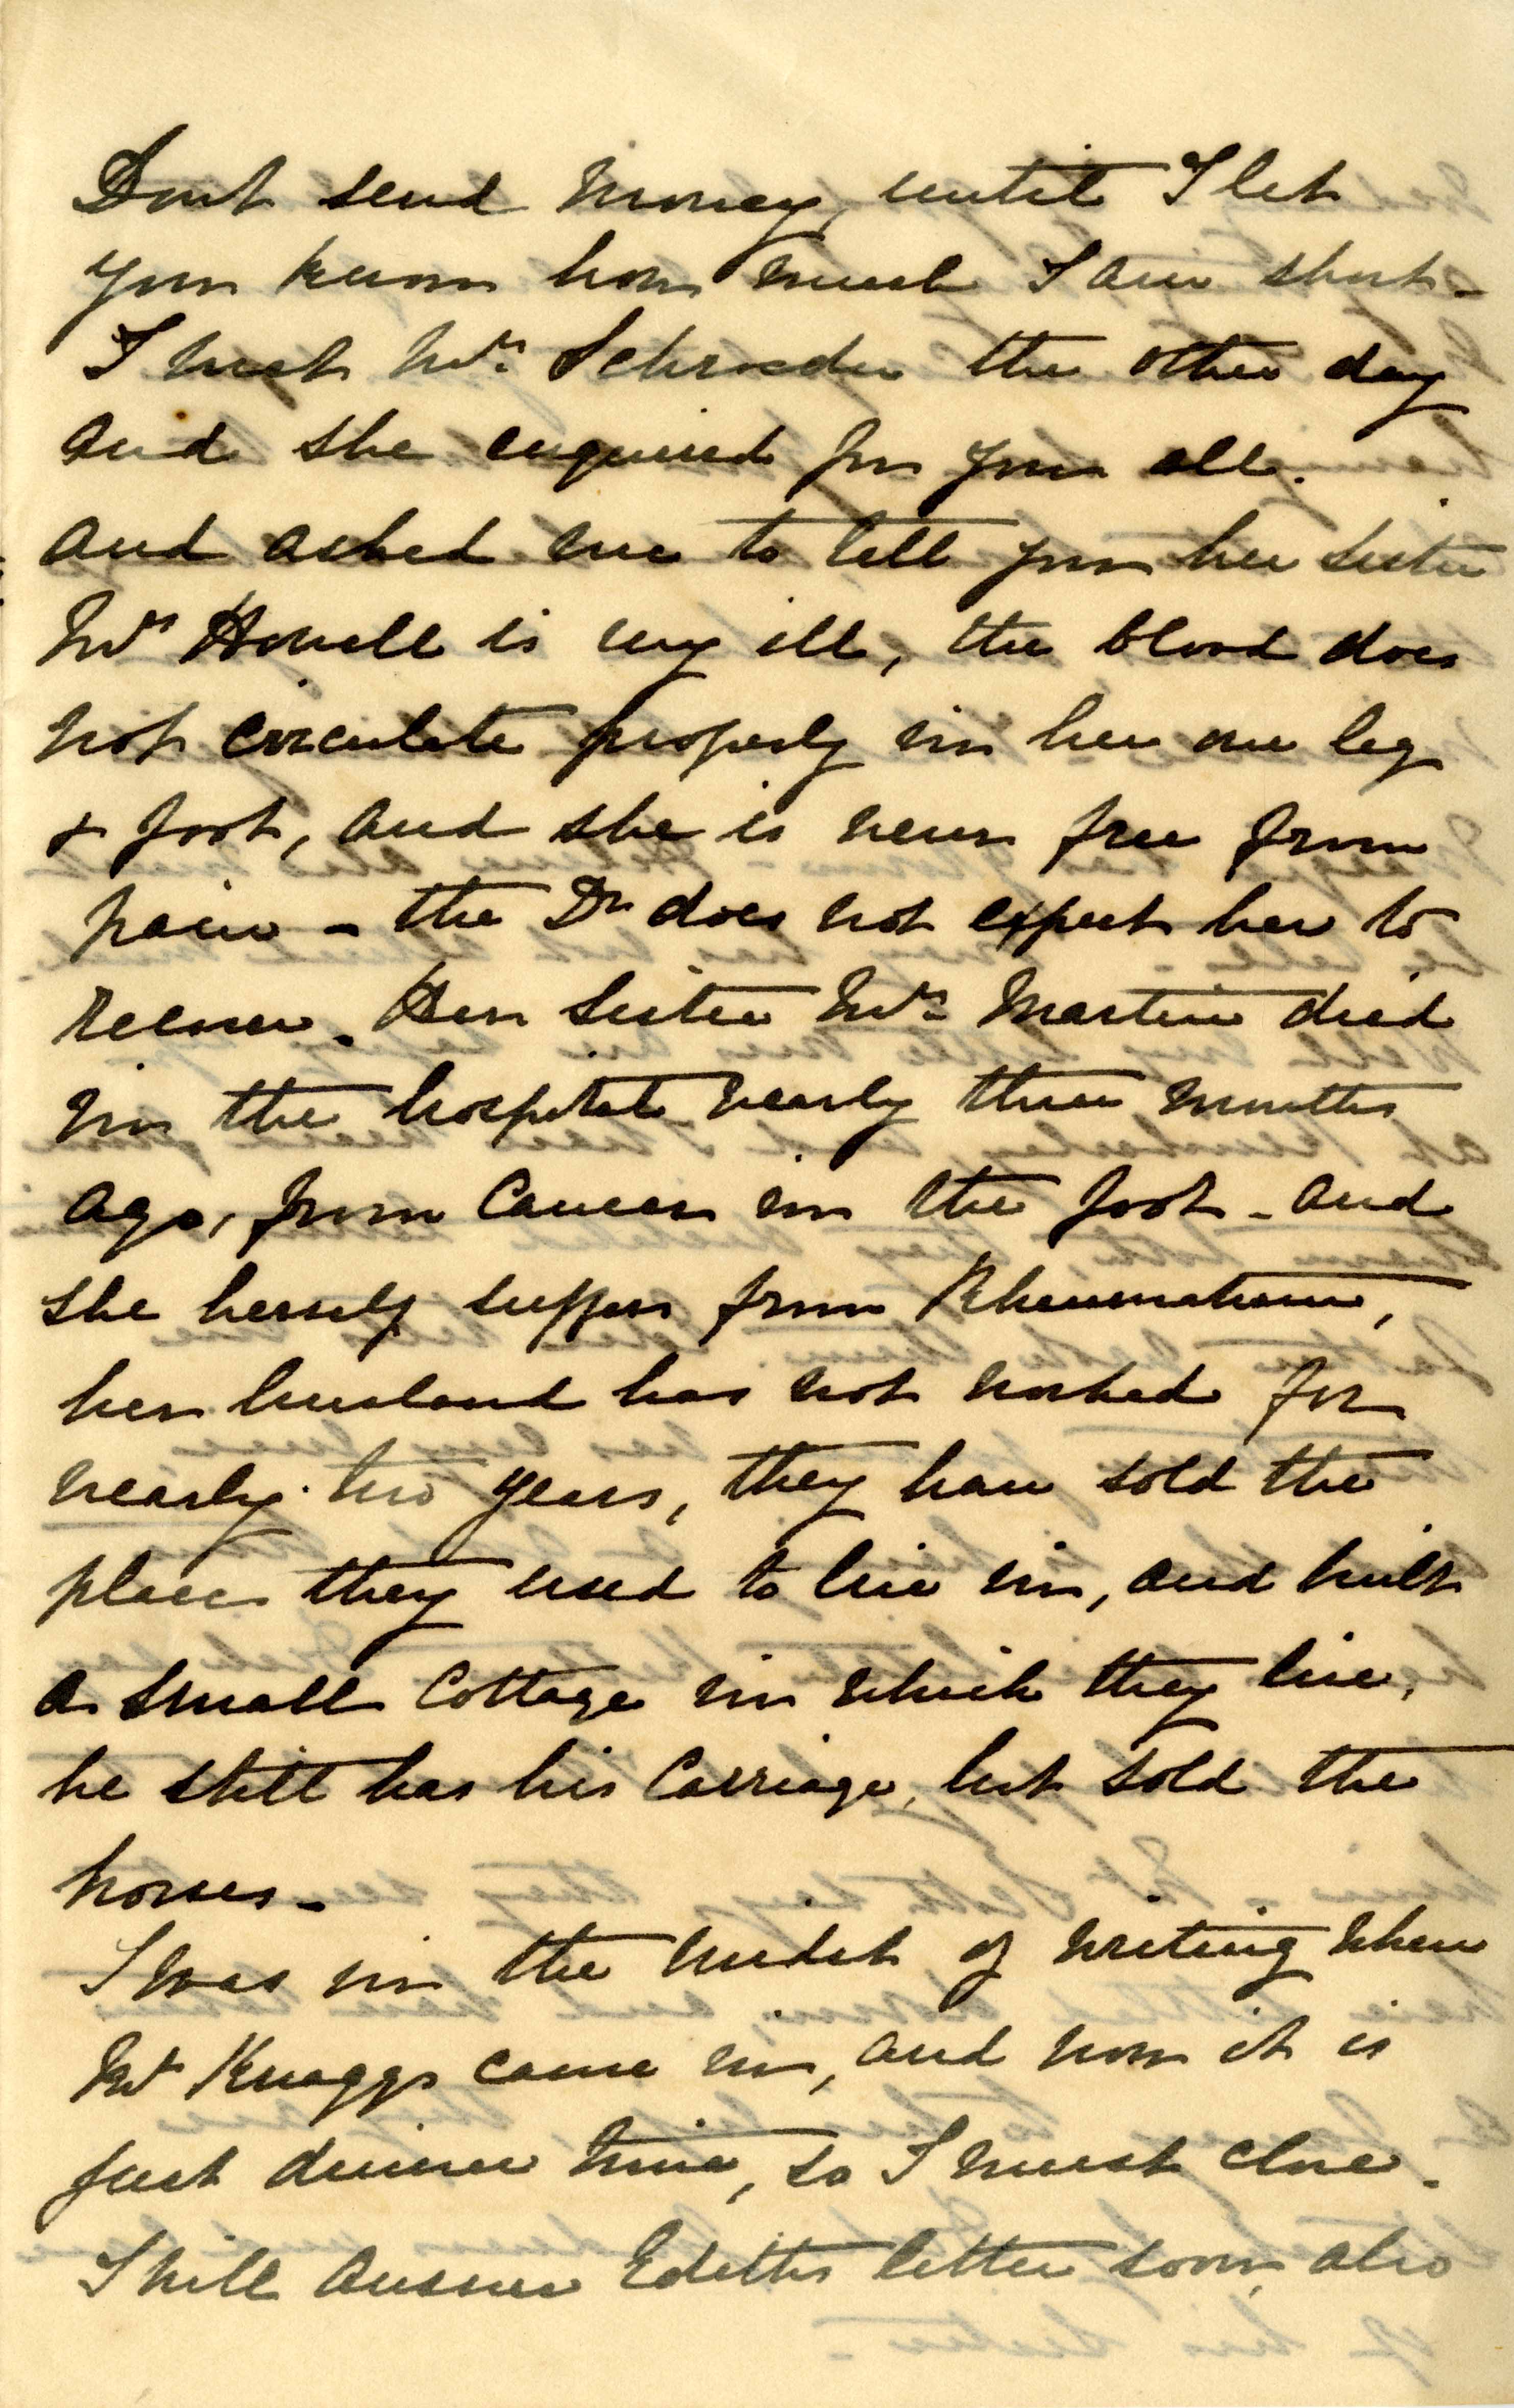 Dont send money, until I let
you know how much I am short -
I met Mrs Schroeder the other day
and she enquired for you all.
and asked me to tell you her sister
Mrs Howell is very ill, the blood does
not circulate properly in her one leg
& foot, and she is never free from
pain - the Dr does not expect her to
recover. Her sister Mrs Martin died
in the hospital nearly three months
ago, from Cancer in the foot - and
she herself suffers from Rheumatism,
her husband has not worked for
nearly two years, they have sold the
place they used to live in, and built
a small Cottage in which they live,
he still has his Carriage, but sold the
horses -
I was in the midst of writing when
Mr Knaggs came in, and now it is
just dinner time, so I must close.
I will answer Ediths letter soon, also